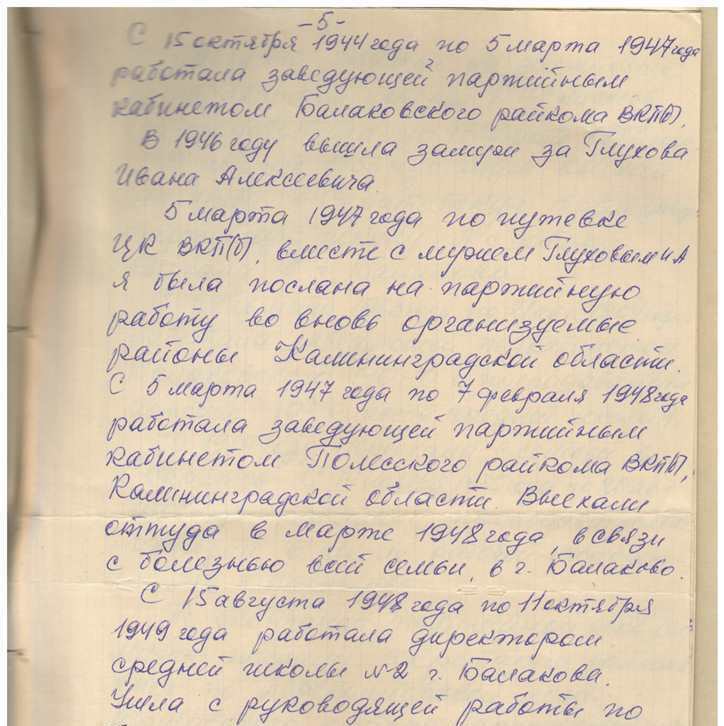 -5-
С 15 октября 1944 года по 5 марта 1947 года
работала заведующей партийным
кабинетом Балаковского райкома ВКП(б).
В 1946 году вышла замуж за Глухова
Ивана Алексеевича.
5 марта 1947 года по путевке
ЦК ВКП(б), вместе с мужем Глуховым И А
я была послана на партийную
работу во вновь организуемые
районы Калининградской области.
С 5 марта 1947 года по 7 февраля 1948 года
работала заведующей партийным
кабинетом Полесского райкома ВКП(б),
Калининградской области. Выехали
оттуда в марте 1948 года, в связи
с болезнью всей семьи, в г. Балаково.
С 15 августа 1948 года по 11 октября
1949 года работала директором
средней школы №2 г. Балакова.
Ушла с руководящей работы по